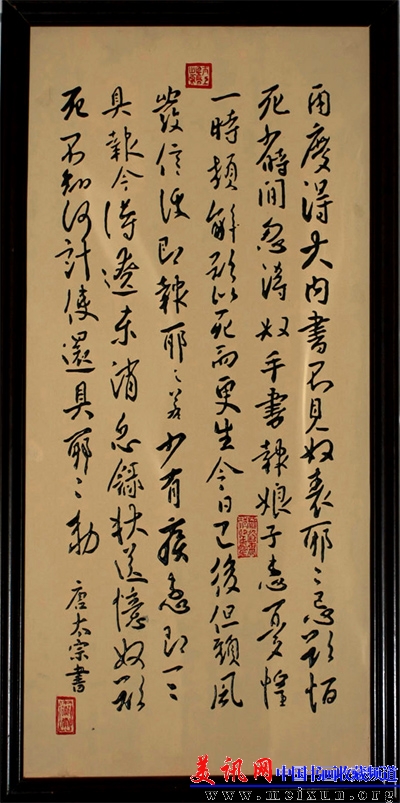 兩度得大內書不見奴表耶〻忌欲恒
死少時間忽得奴手書報娘子患憂惶
一時頓解欲似死而更生今日已後但頭風
發信便即報耶〻若少有疾患即一〻
具報今得遼東消息錄狀送憶奴欲
死不知何計使還具耶〻勅 唐太宗書
美讯网 中国书画收藏频道
www.meixun.org